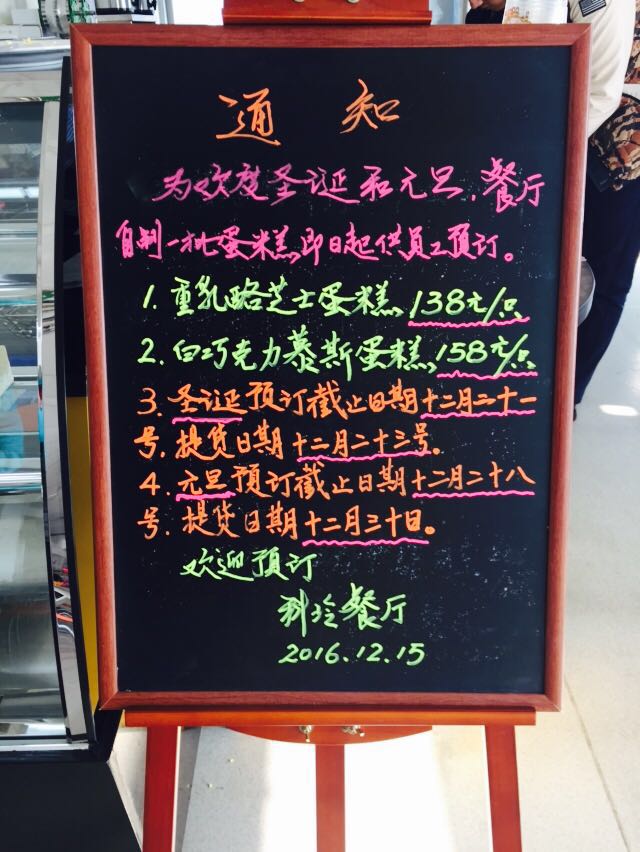 通知
为欢度圣诞和元旦，餐厅
自制一批蛋糕即日起供员工预订。
1. 重乳酪芝士蛋糕，138元/只
2. 白巧克力慕斯蛋糕，158元/只
3. 圣诞预订截止日期十二月二十一
号，提货日期十二月二十三号。
4. 元旦预订截止日期十二月二十八
号，提货日期十二月三十日。
欢迎预订
科玲餐厅
2016.12.15